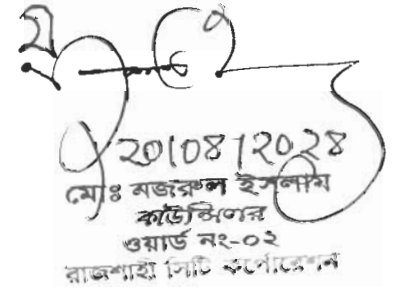 ২০/০৪/২০২৪
মোঃ নজরুল ইসলাম
কাউন্সিলর
ওয়ার্ড নং-০২
রাজশাহী সিটি কর্পোরেশন